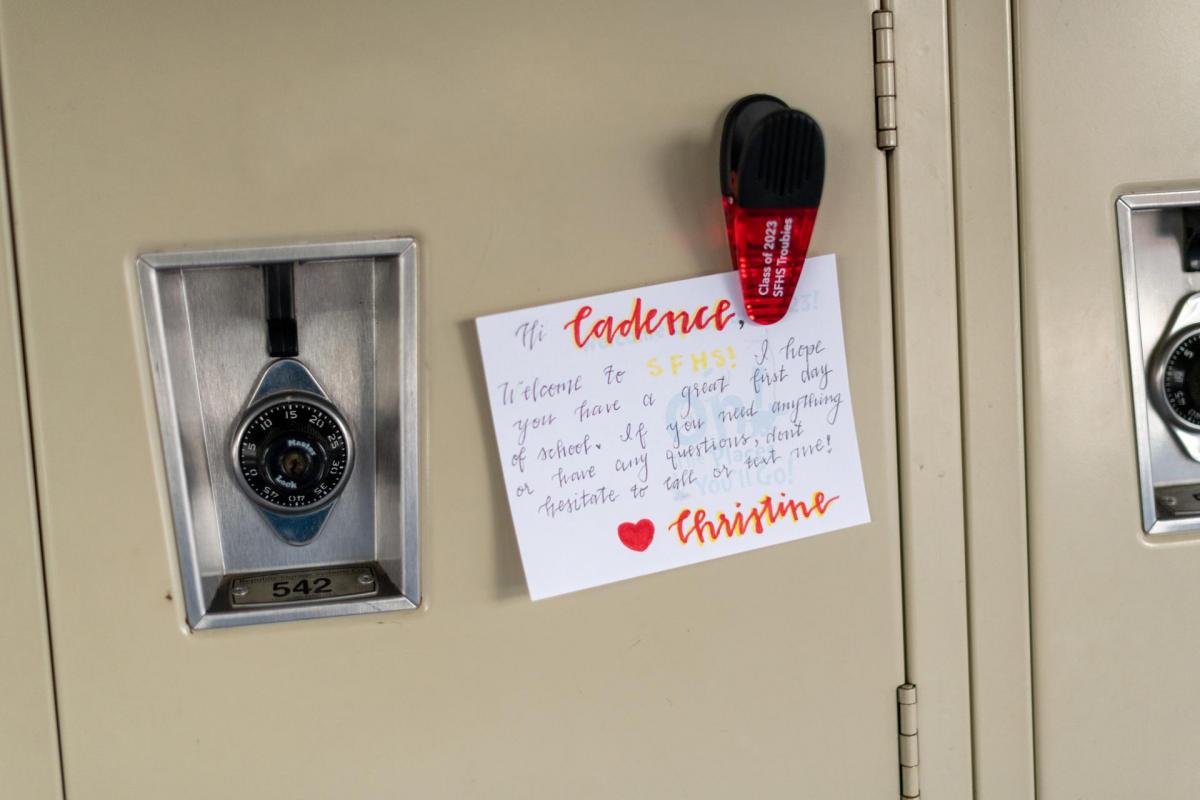 Class of 2023
SFHS Troubles
Hi Cadence,
Welcome to SFHS! I hope
you have a great first day
of school. If you need anything
or have any questions, dont
hesitate to call or text me!
Christine
0 5 10 15 20 25 30 35 40 45
Master
Lock
542
You'll Go!